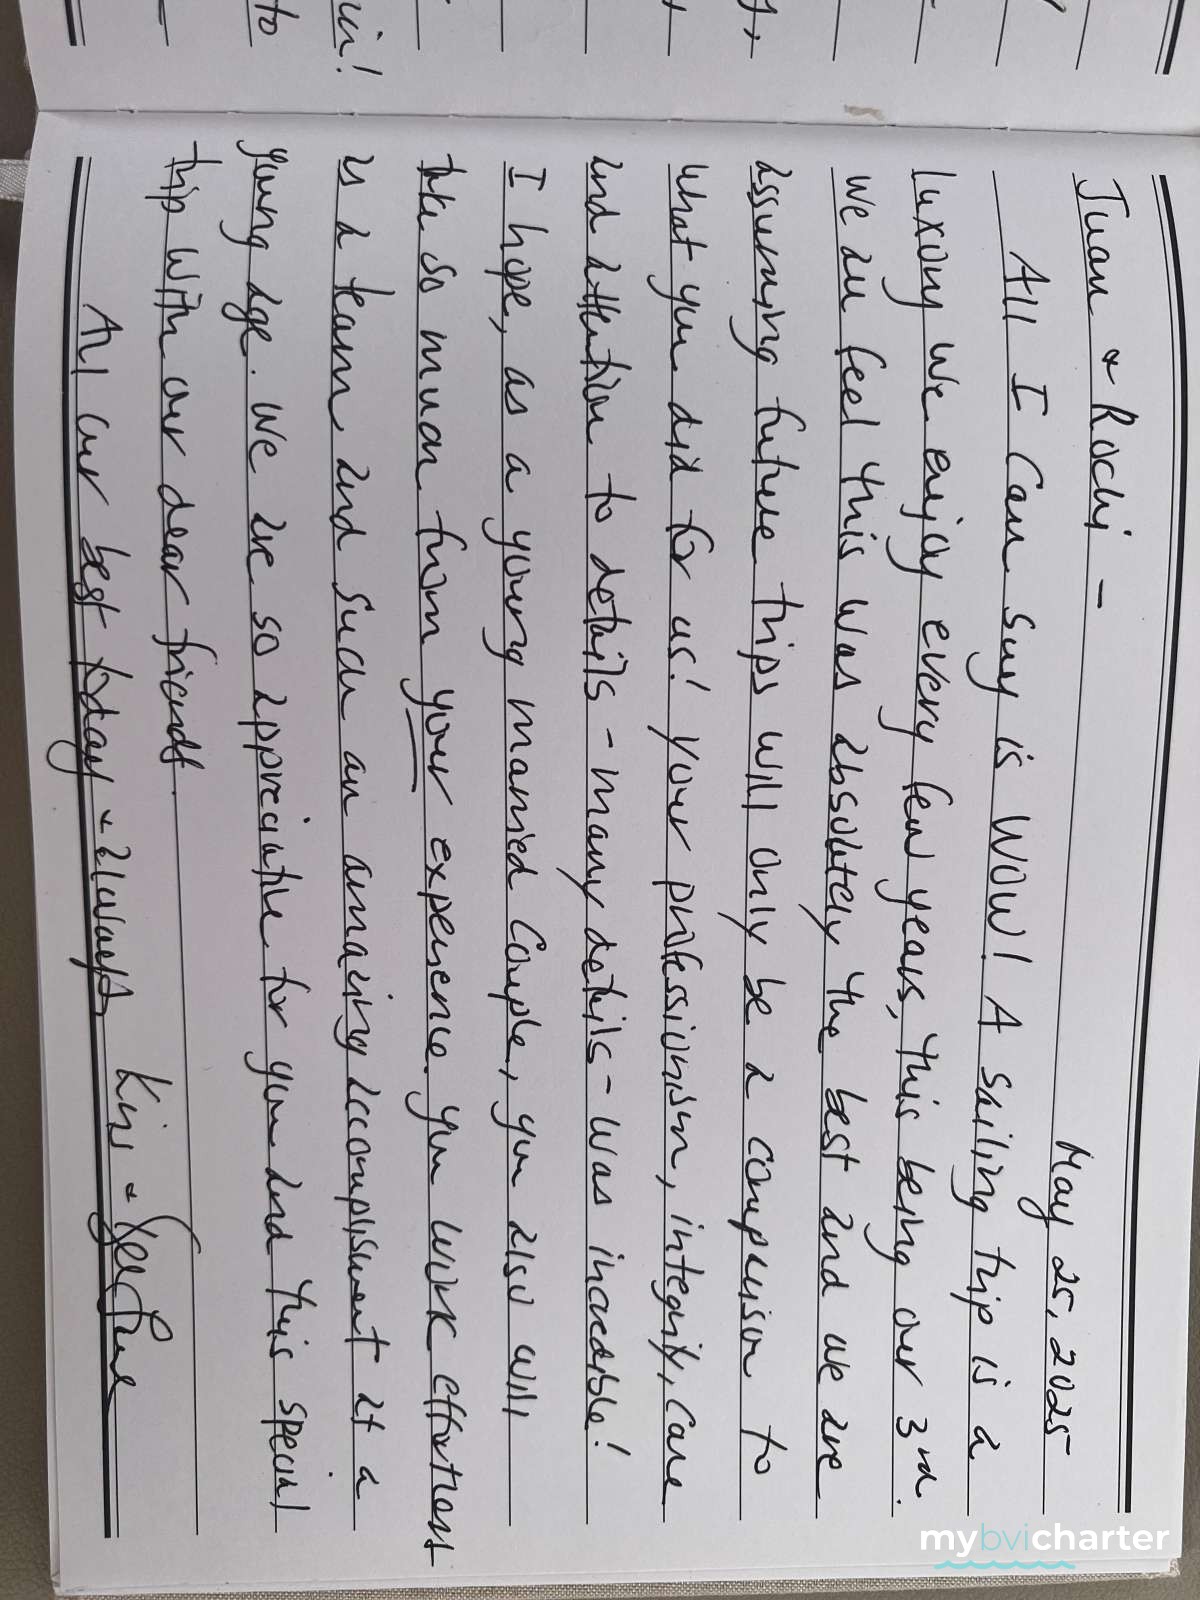 May 25, 2025
Juan & Rochi -
All I can say is WOW! A sailing trip is a
luxury we enjoy every few years, this being our 3rd.
We all feel this was absolutely the best and we are
assuming future trips will only be a comparison to
what you did for us! Your professionism, integrity, care
and attention to details - many details - was incredible!
I hope, as a young married couple, you also will
take so much from your experience. You work effortless
as a team and such an amazing accomplishment at a
young age. We are so appreciative for you and this special
trip with our dear friends.
All our best today & always
Kris &
uin!
to
mybvicharter